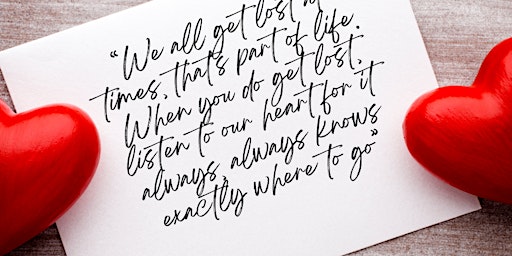 “We all get lost at
times, that's part of life.
When you do get lost,
listen to our heart for it
always, always knows
exactly where to go”